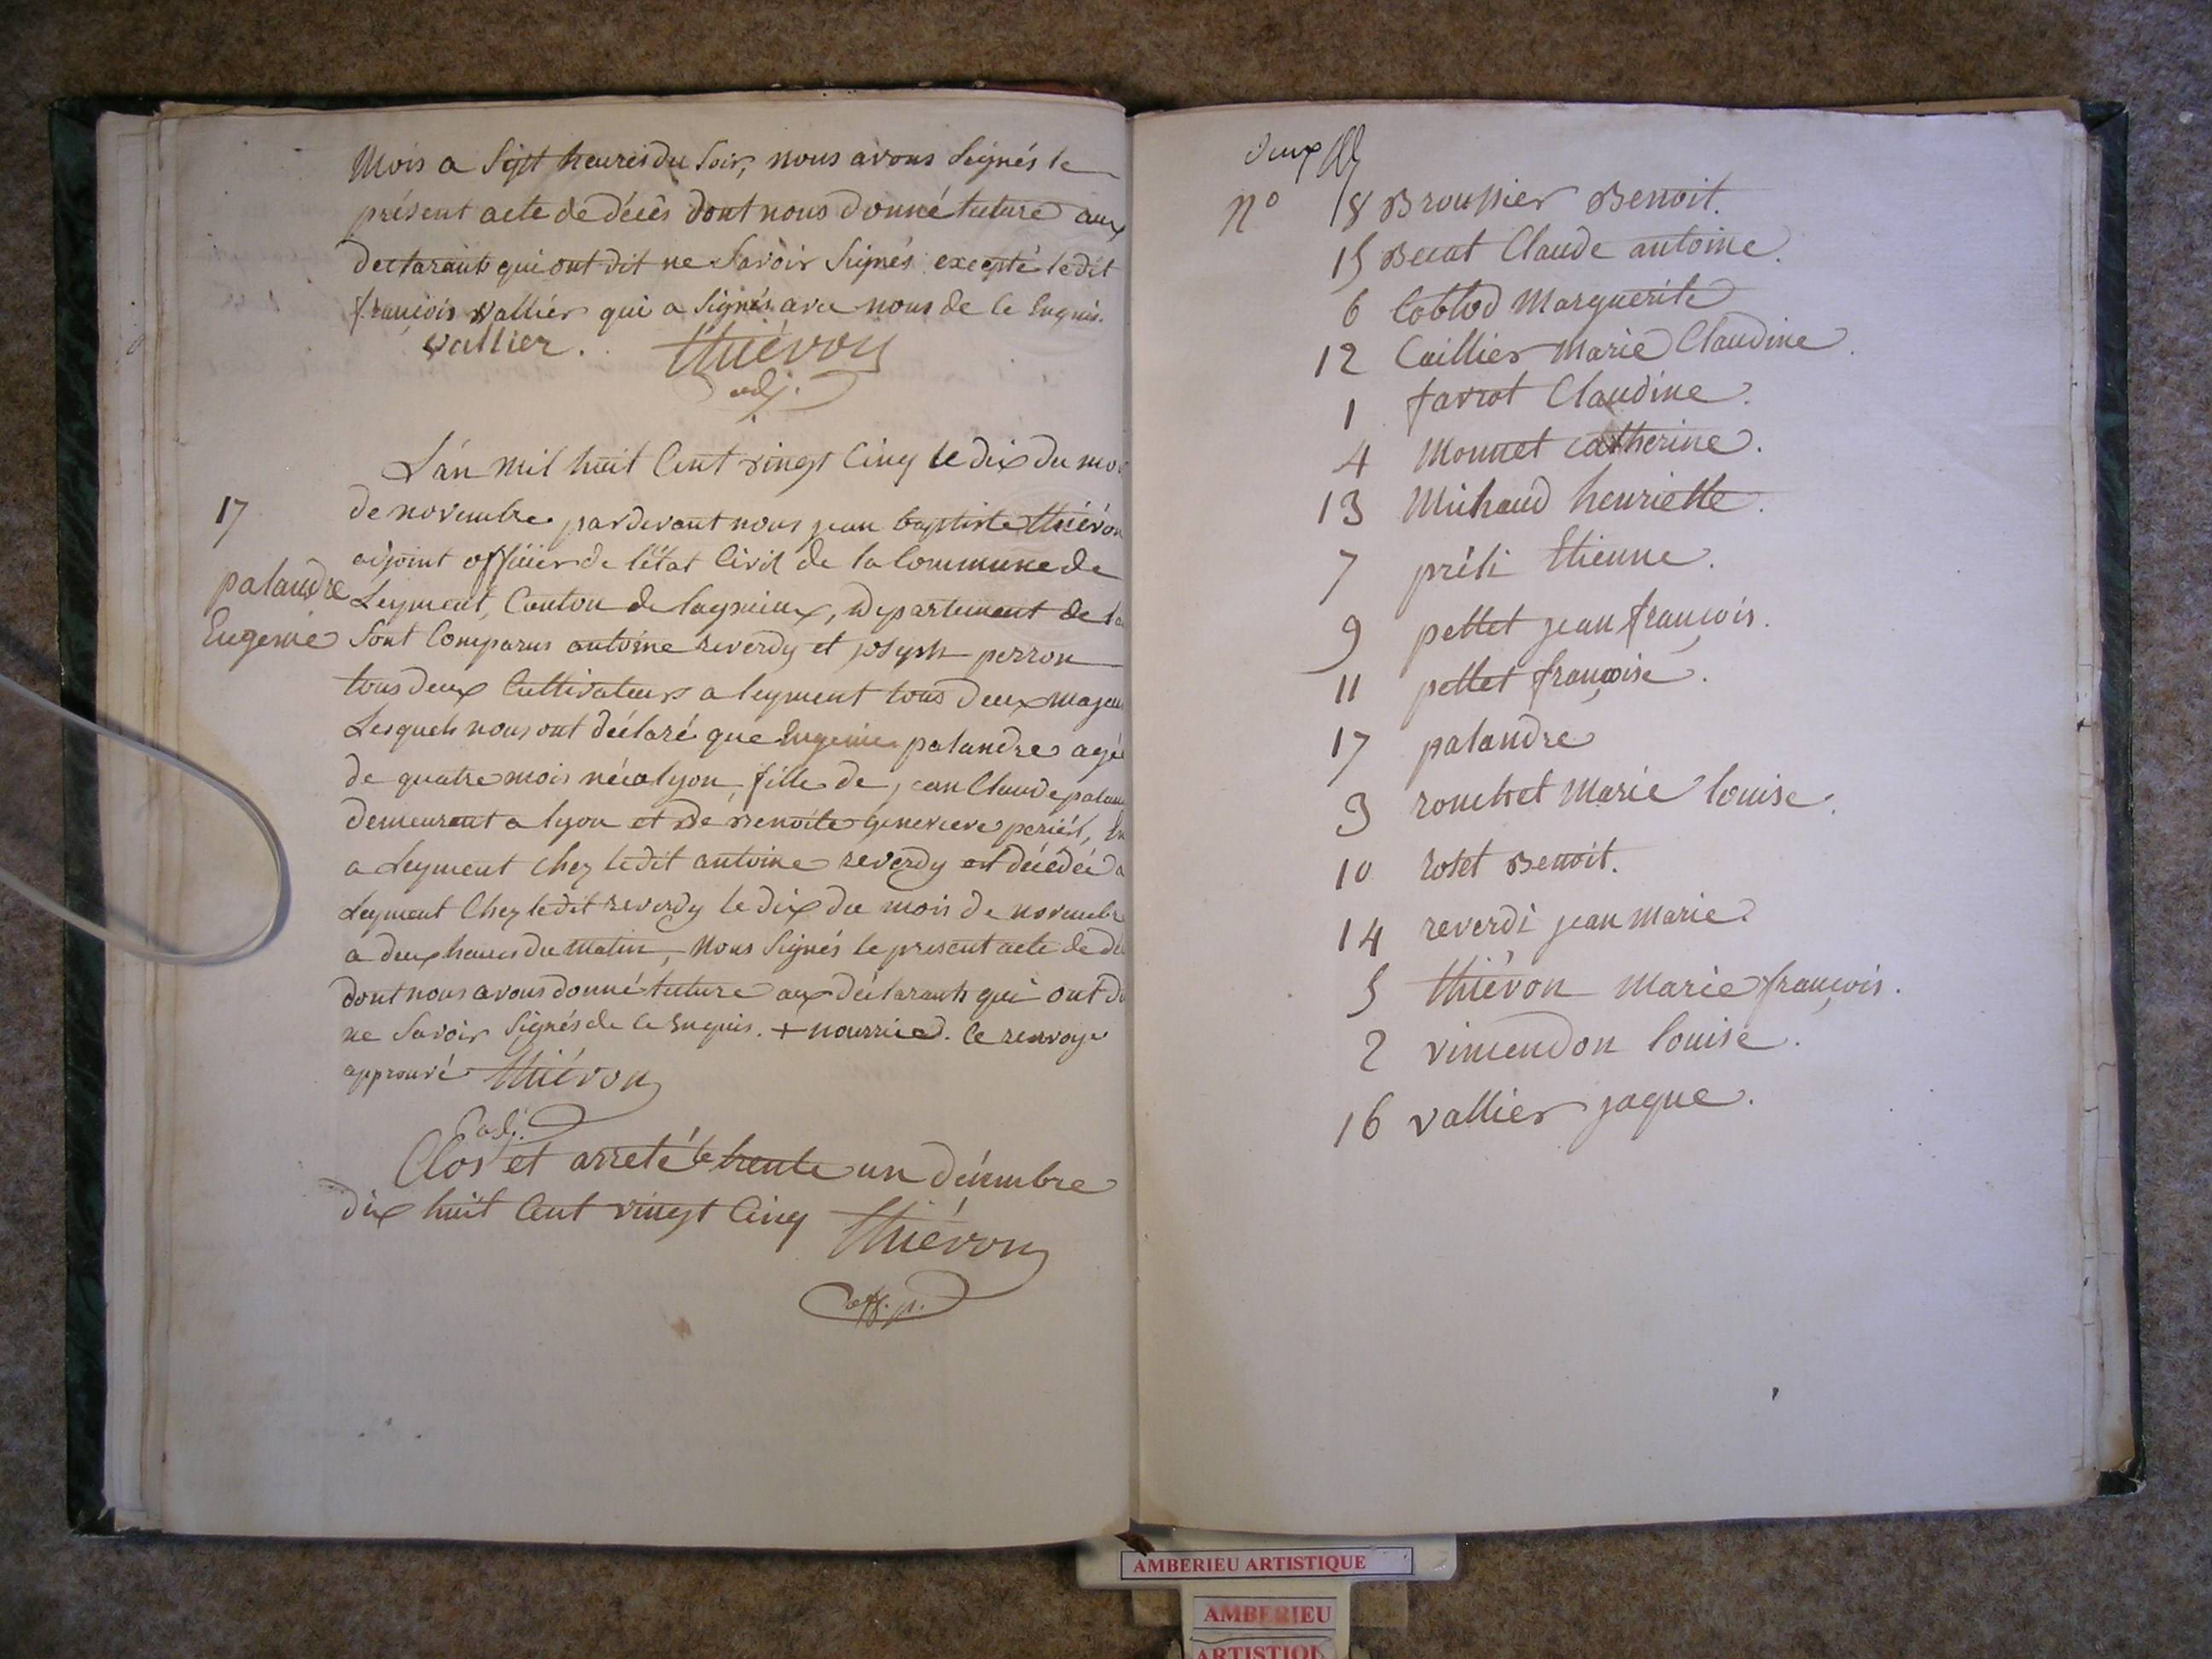 Mois a Sept heures du Soir, nous avons Seignés le
présent acte de décès dont nous donné lecture aux
declarants qui ont dit ne Savoir Signés excepté ledit
françois Vallier qui a Signés avec nous de ce Enquis.
vallier. thiévon
adj.
L'an mil huit Cent vingt Cinq le dix du mois
17
de novembre pardevant nous jean baptiste thiévon
adjoint officier de l'état Civil de la Commune de
palandre
Leyment, Canton de lagnieux, Departement de la
Eugenie
Sont Comparus antoine reverdy et joseph perron
tous deux Cultivateurs a leyment tous deux majeu
Lesquels nous ont déclaré que Eugenie palandre agée
de quatre mois née a lyon, fille de jean Claude palan
demeurant a lyon et De Benoite genevieve periél, En
a Leyment chez ledit antoine reverdy est décédée a
Leyment Chez ledit reverdy le dix du mois de novembre
a deux heures du matin, Nous Signés le present acte de dé
dont nous avons donné lecture aux déclarants qui ont di
ne Savoir Signés de ce Enquis. + nourrice. le renvoye
approuvé thiévon
adj.
Clos et arreté le trente un décembre
dix huit Cent vingt Cinq thiévon
off. p.
deux
N° 8 Broussier Benoit.
15 Becat Claude antoine.
6 Coblod Marguerite
12 Caillier Marie Claudine.
1 favrot Claudine.
4 Monnet catherine.
13 Michaud henriette.
7 préli Etienne.
9 pellet jean françois.
11 pellet françoise.
17 palandre
3 rouchet Marie louise.
10 roset Benoit.
14 reverdi jean marie
5 thiévon Marie françois.
2 vincendon louise.
16 vallier jaque.
AMBERIEU ARTISTIQUE
AMBERIEU